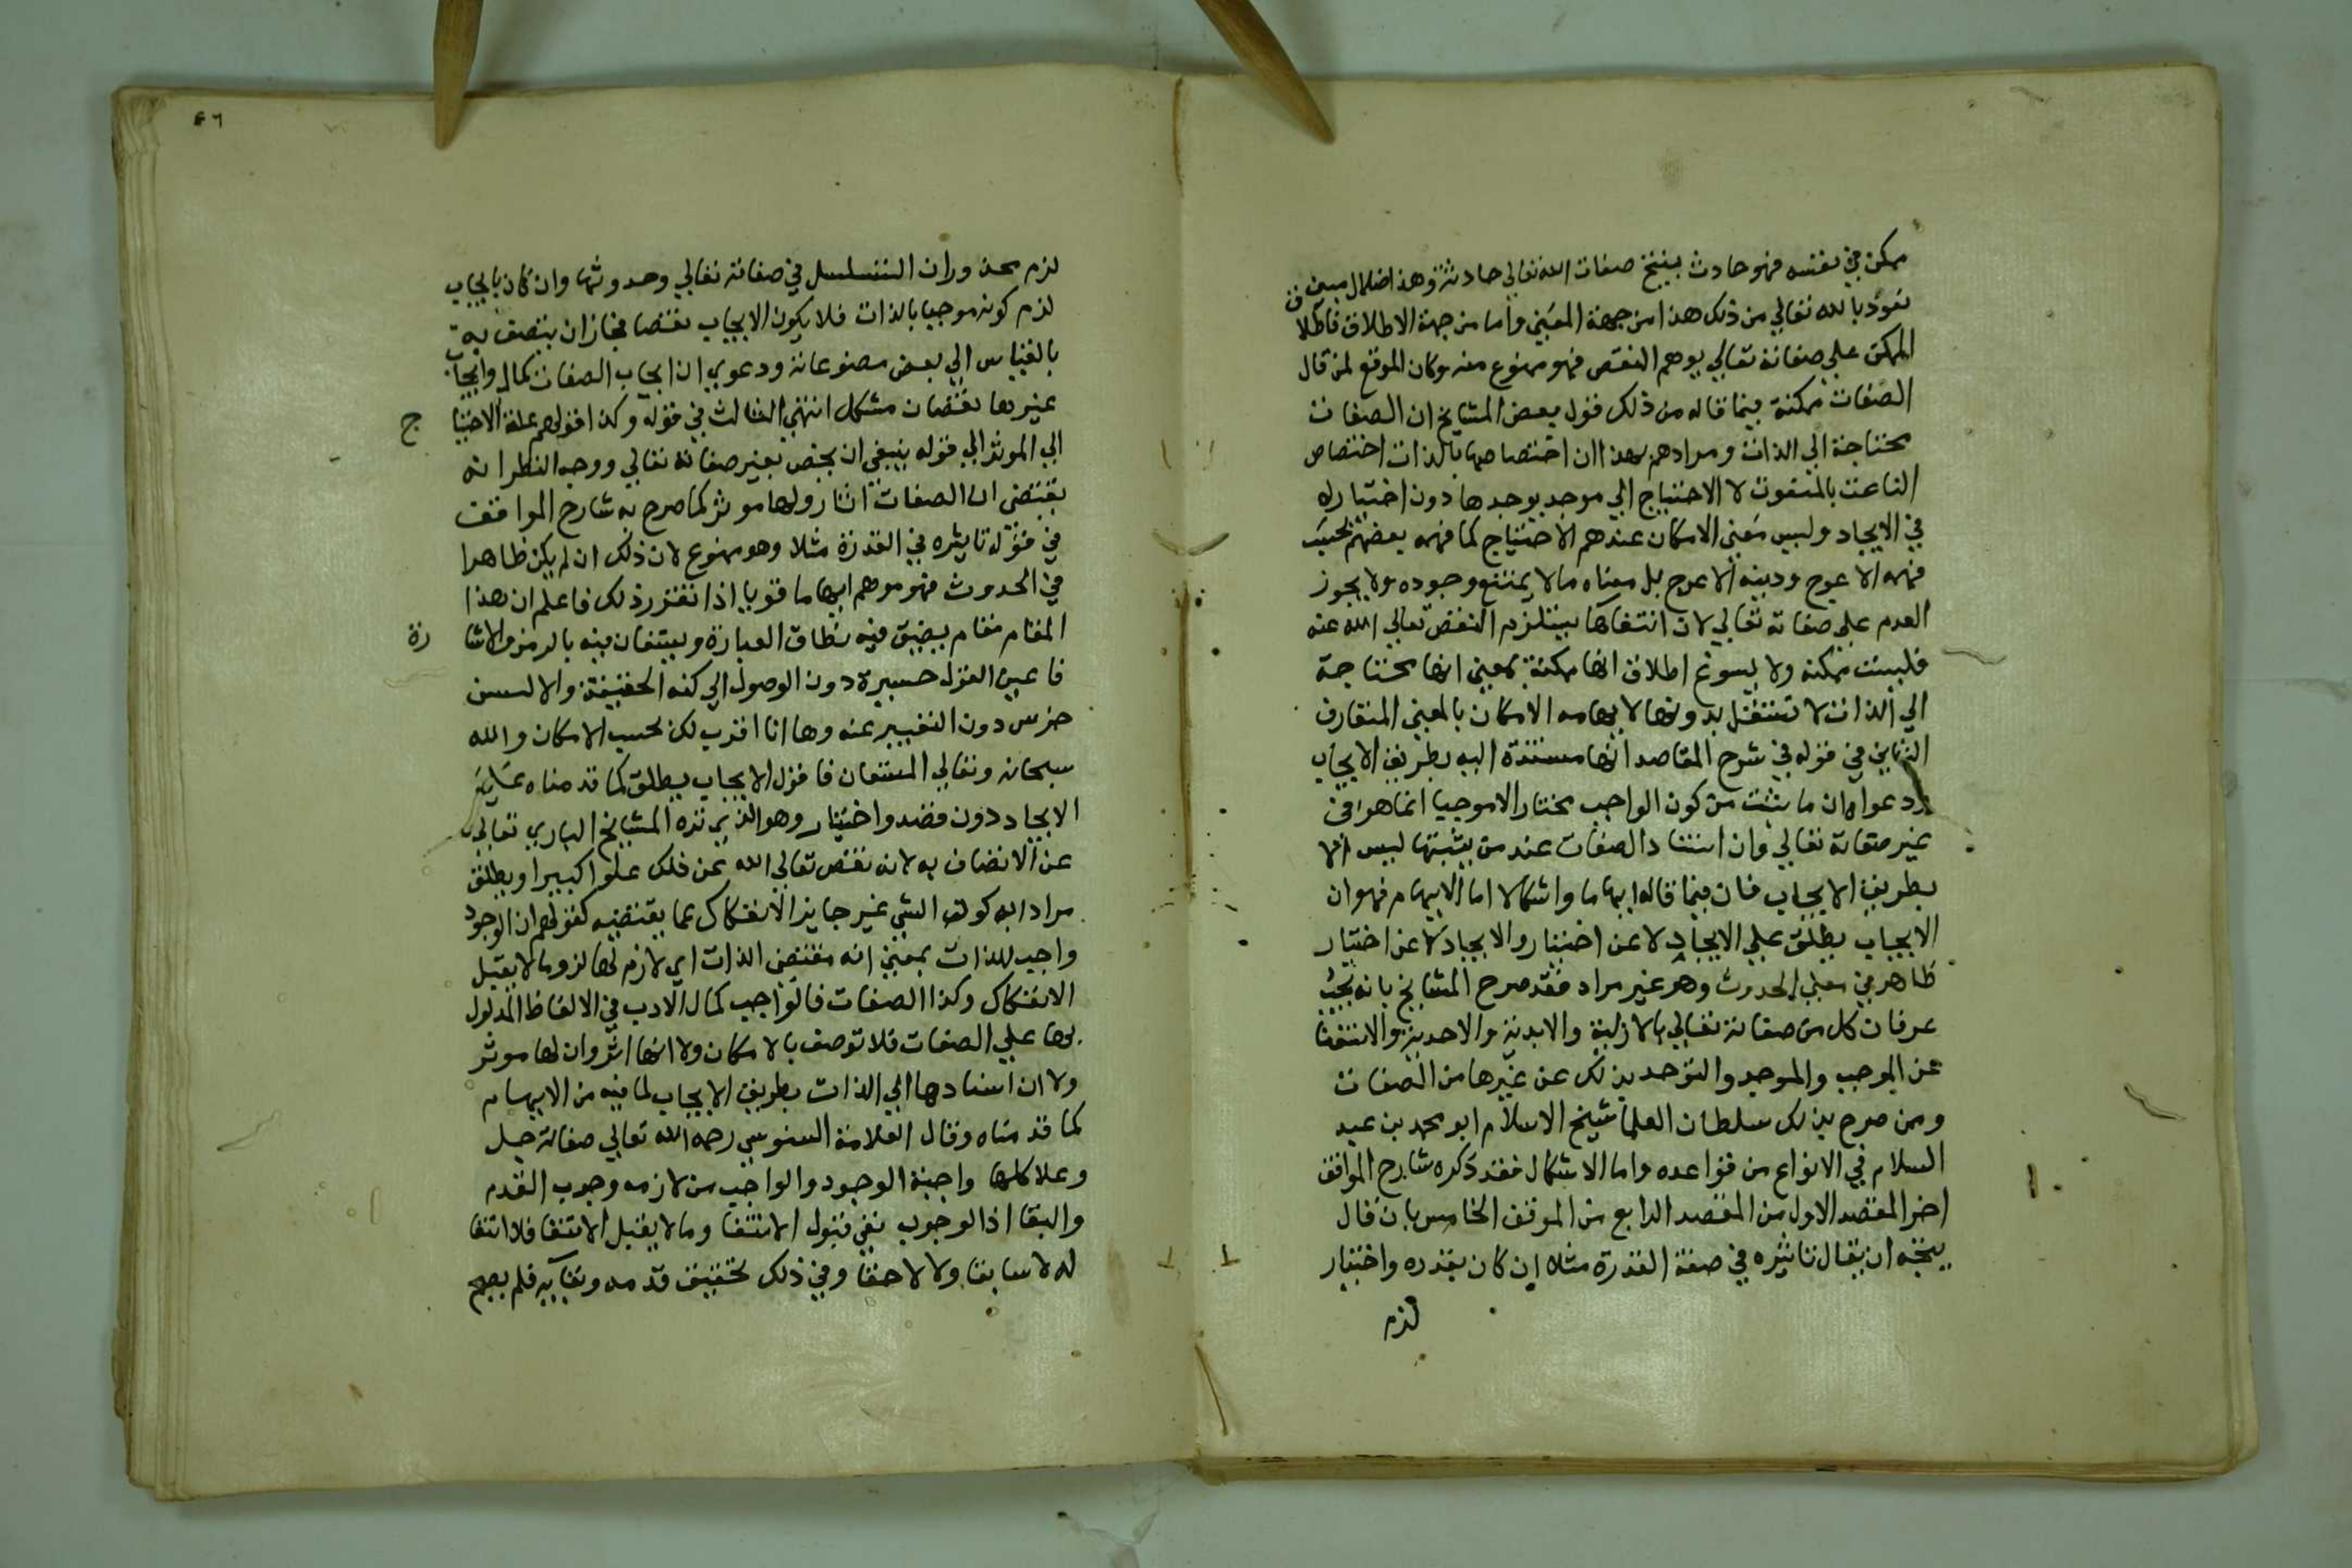 ممكن في نفسه فهو حادث ينتج صفات الله تعالي حادثة وهذا ضلال مبين
نعوذ بالله تعالي من ذلك هذا من جهة المعني واما من جهة الاطلاق فاطلاق
الممكن علي صفاته تعالي يوهم النقص فهو ممنوع منه وكان الموقع لمن قال
الصفات ممكنة فيما قاله من ذلك قول بعض المشايخ ان الصفات
محتاجة الي الذات ومرادهم بهذا ان اختصاصها بالذات اختصاص
الناعت بالمنعوت لا الاحتياج الي موجد يوجدها دون اختيار له
في الايجاد وليس معني الامكان عندهم الاحتياج كما فهمه بعضهم بحسب
فهمه الاعوج ودينه الاعوج بل معناه ما لا يمتنع وجوده ولا يجوز
العدم علي صفاته تعالي لان انتفاءها يستلزم النقص تعالي الله عنه
فليست ممكنة ولا يسوغ اطلاق انها ممكنة بمعني انها محتاجة
الي الذات لا تستقل بدونها لايهامه الامكان بالمعني المتعارف
الثاني في قوله في شرح المقاصد انها مستندة اليه بطريق الايجاب
ودعواه ان ما يثبت من كون الواجب مختارا لا موجبا انما هو في
غير صفاته تعالي وان استناد الصفات عند من يثبتها ليس الا
بطريق الايجاب فان فيما قاله ايهاما واشكالا اما الايهام فهو ان
الايجاب يطلق علي الايجاد لا عن اختيار والايجاد لا عن اختيار
ظاهر في معني الحدوث وهو غير مراد فقد صرح المشايخ بانه يجب
عرفان كل من صفاته تعالي بالازلية والابدية والاحدية والاستغنا
عن الموجب والموجد والتوحد بذلك عن غيرها من الصفات
وممن صرح بذلك سلطان العلما شيخ الاسلام ابو محمد بن عبد
السلام في الانواع من قواعده واما الاشكال فقد ذكره شارح المواقف
اخر المقصد الاول من المقصد الرابع من الموقف الخامس بان قال
يتجه ان يقال تاثيره في صفة القدرة مثلا ان كان بقدره واختيار
لزم
٤٦
لزم محذوران التسلسل في صفاته تعالي وحدوثها وان كان بايجاب
لزم كونه موجبا بالذات فلا يكون الايجاب نقصا فجاز ان يتصف به
بالقياس الي بعض مصنوعاته ودعوي ان ايجاب الصفات كمال وايجاب
غيرها نقصان مشكل انتهي الثالث في قوله وكذا قولهم علة الاحتياج
الي الموثر الي قوله ينبغي ان يختص بغير صفاته تعالي ووجه النظر انه
يقتضي ان الصفات اثار ولها موثر كما صرح به شارح المواقف
في قوله تاثيره في القدرة مثلا وهو ممنوع لان ذلك ان لم يكن ظاهرا
في الحدوث فهو موهم ايهاما قويا اذا تقرر ذلك فاعلم ان هذا
المقام مقام يضيق فيه نطاق العبارة ويستعان فيه بالرمز والاشارة
فاعين العقل حسيرة دون الوصول الي كنه الحقيقة والالسن
خرس دون التعبير عنه وها انا اقرب لك بحسب الامكان والله
سبحانه وتعالي المستعان فاقول الايجاب يطلق كما قدمناه علي
الايجاد دون قصد واختيار وهو الذي نزه المشايخ الباري تعالي
عن الاتصاف به لانه نقص تعالي الله عن ذلك علوا كبيرا ويطلق
مرادا به كون الشي غير جايز الانفكاك عما يقتضيه كقولهم ان الوجود
واجب للذات بمعني انه مقتضي الذات اي لازم لها لزوما لا يقبل
الانفكاك وكذا الصفات فالواجب كمال الادب في الالفاظ المدلول
بها علي الصفات فلا توصف بالامكان ولا انها اثر وان لها موثر
ولا ان اسنادها الي الذات بطريق الايجاب لما فيه من الايهام
كما قدمناه وقال العلامة السنوسي رحمه الله تعالي صفاته جل
وعلا كلها واجبة الوجود والواجب من لازمه وجوب القدم
والبقا اذ الوجوب نفي قبول الانتفا وما لا يقبل الانتفا فلا انتفا
له لا سابقا ولا لاحقا وفي ذلك تحقيق قدمه وبقايه فلم يصح